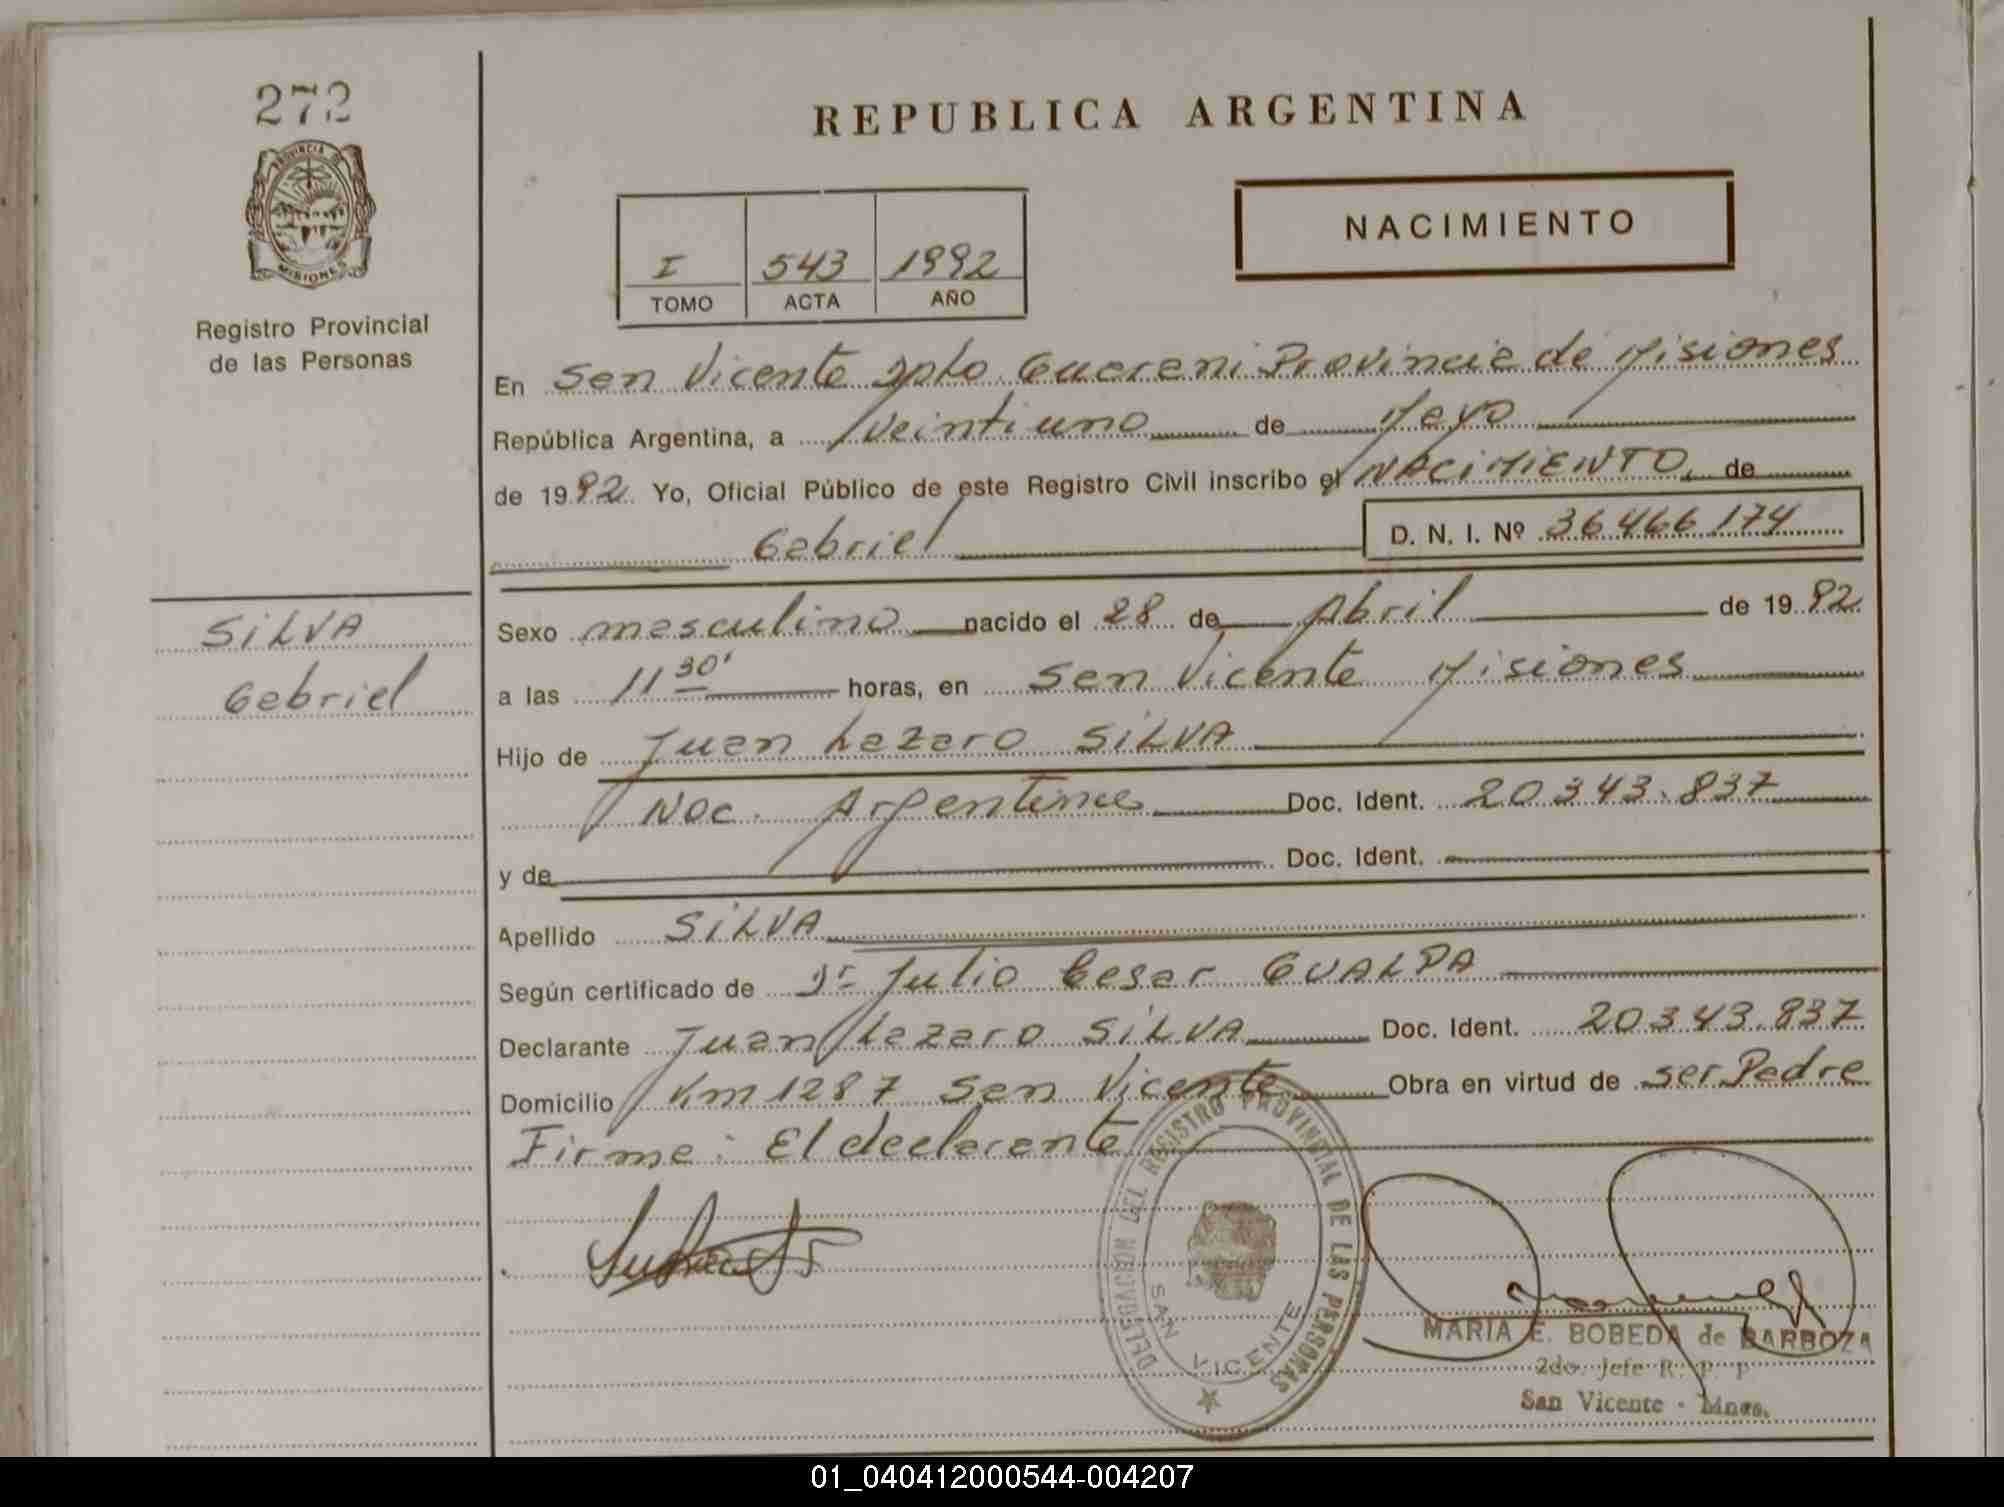 272
REPUBLICA ARGENTINA
PROVINCIA DE
MISIONES
NACIMIENTO
I 543 1992
TOMO ACTA AÑO
Registro Provincial
de las Personas
En San Vicente Dpto. Guarani Provincia de Misiones
República Argentina, a Veintiuno de Mayo
de 1992 Yo, Oficial Público de este Registro Civil inscribo el NACIMIENTO de
Gabriel D. N. I. Nº 36466174
SILVA
Gabriel
Sexo masculino nacido el 28 de Abril de 1992
a las 11 30' horas, en San Vicente Misiones
Hijo de Juan Lazaro SILVA
Nac. Argentina Doc. Ident. 20343.837
y de Doc. Ident.
Apellido SILVA
Según certificado de Dr Julio Cesar GUALPA
Declarante Juan Lazaro SILVA Doc. Ident. 20343.837
Domicilio Km 1287 San Vicente Obra en virtud de ser Padre
Firma: El declarante
DELEGACION DEL REGISTRO PROVINCIAL DE LAS PERSONAS
SAN VICENTE
MARIA E. BOBEDA de BARBOZA
2do. Jefe R. P. P
San Vicente - Mnes.
01_040412000544-004207